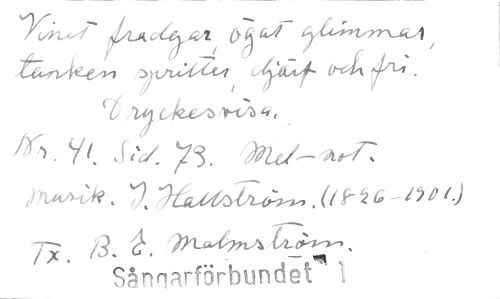 Vinet fradgar, ögat glimmar,
tanken spritter, djärf och fri.
Dryckesvisa.
Nr. 41. Sid. 73. Mel-not.
Musik. I. Hallström. (1826-1901.)
Tx. B. E. Malmström.
Sångarförbundet 1